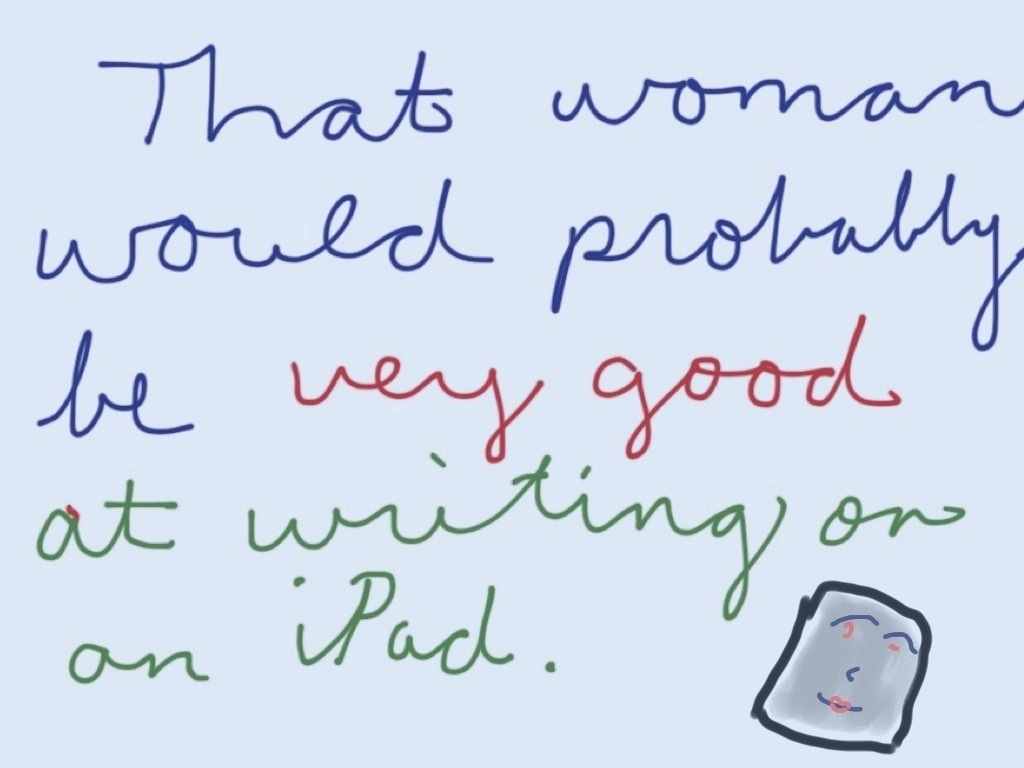 That woman
would probably
be very good
at writing on
an iPad.